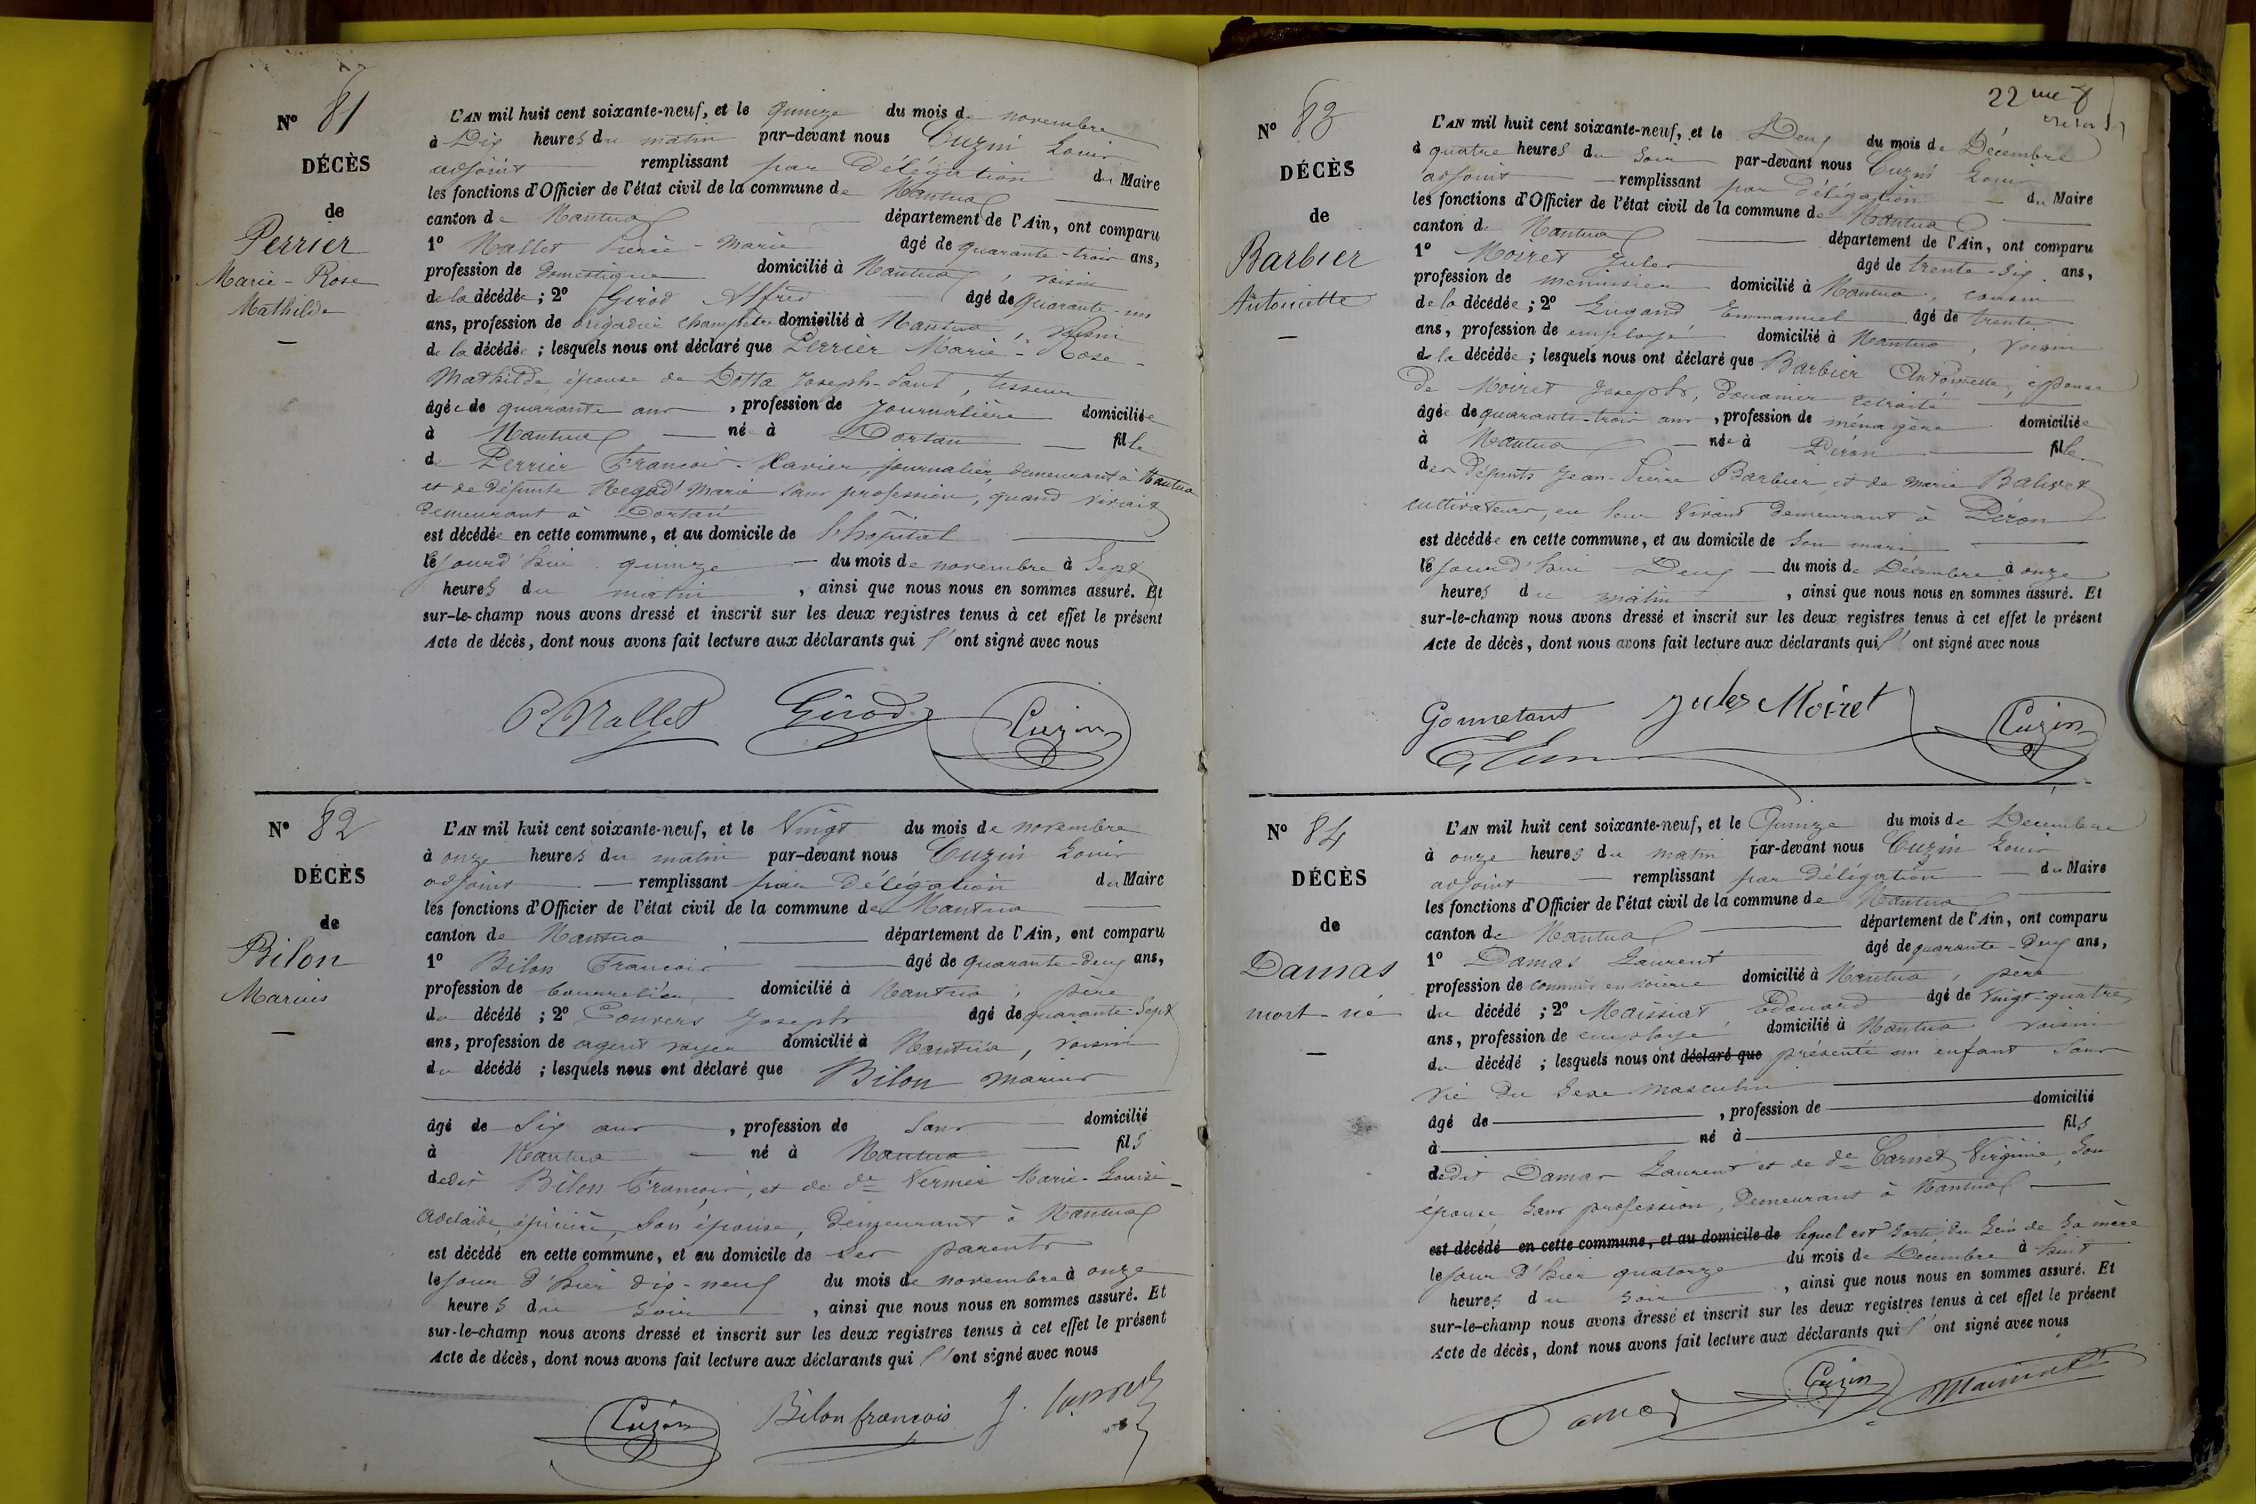 N° 81
DÉCÈS
de
Perrier
Marie-Rose
Mathilde
L'AN mil huit cent soixante-neuf, et le quinze du mois de novembre
à Dix heures du matin par-devant nous Cuzin Louis
adjoint remplissant par délégation du Maire
les fonctions d'Officier de l'état civil de la commune de Nantua
canton de Nantua département de l'Ain, ont comparu
1° Mallet Pierre-Marie âgé de quarante-trois ans,
profession de domestique domicilié à Nantua, voisin
de la décédée; 2° Girod Alfred âgé de quarante-un
ans, profession de brigadier champêtre domicilié à Nantua, voisin
de la décédée; lesquels nous ont déclaré que Perrier Marie-Rose-
Mathilde, épouse de Dotta Joseph-Paul, tisseur
âgée de quarante ans, profession de journalière domiciliée
à Nantua née à Dortan fille
de Perrier François-Xavier, journalier, demeurant à Nantua
et de défunte Regad Marie sans profession, quand vivait
demeurant à Dortan
est décédée en cette commune, et au domicile de l'hôpital
lejourd'hui quinze du mois de novembre à sept
heures du matin, ainsi que nous nous en sommes assuré. Et
sur-le-champ nous avons dressé et inscrit sur les deux registres tenus à cet effet le présent
Acte de décès, dont nous avons fait lecture aux déclarants qui l'ont signé avec nous
P. Mallet Girod Cuzin
N° 82
DÉCÈS
de
Bilon
Marius
L'AN mil huit cent soixante-neuf, et le Vingt du mois de novembre
à onze heures du matin par-devant nous Cuzin Louis
adjoint remplissant par délégation du Maire
les fonctions d'Officier de l'état civil de la commune de Nantua
canton de Nantua département de l'Ain, ont comparu
1° Bilon François âgé de quarante-deux ans,
profession de bourrelier domicilié à Nantua, père
du décédé; 2° Convers Joseph âgé de quarante-sept
ans, profession de agent voyer domicilié à Nantua, voisin
du décédé; lesquels nous ont déclaré que Bilon Marius
âgé de six ans, profession de sans domicilié
à Nantua né à Nantua fils
dedit Bilon François, et de de Vermée Marie-Louise-
Adelaïde, épicière, son épouse, demeurant à Nantua
est décédé en cette commune, et au domicile de ses parents
lejour d'hier dix-neuf du mois de novembre à onze
heures du soir, ainsi que nous nous en sommes assuré. Et
sur-le-champ nous avons dressé et inscrit sur les deux registres tenus à cet effet le présent
Acte de décès, dont nous avons fait lecture aux déclarants qui l'ont signé avec nous
Cuzin Bilon françois J. Convers
22me f
N° 83
DÉCÈS
de
Barbier
Antoinette
L'AN mil huit cent soixante-neuf, et le Deux du mois de Décembre
à quatre heures du soir par-devant nous Cuzin Louis
adjoint remplissant par délégation du Maire
les fonctions d'Officier de l'état civil de la commune de Nantua
canton de Nantua département de l'Ain, ont comparu
1° Moiret Jules âgé de trente-six ans,
profession de menuisier domicilié à Nantua, cousin
de la décédée; 2° Emmanuel âgé de trente
ans, profession de employé domicilié à Nantua, voisin
de la décédée; lesquels nous ont déclaré que Barbier Antoinette, épouse
de Moiret Joseph, douanier retraité
âgée de quarante-trois ans, profession de ménagère domiciliée
à Nantua née à Péron fille
des défunts Jean-Pierre Barbier et de Marie Balivet
cultivateurs, en leur vivant demeurant à Péron
est décédée en cette commune, et au domicile de son mari
lejourd'hui Deux du mois de Décembre à onze
heures du matin, ainsi que nous nous en sommes assuré. Et
sur-le-champ nous avons dressé et inscrit sur les deux registres tenus à cet effet le présent
Acte de décès, dont nous avons fait lecture aux déclarants qui l'ont signé avec nous
Gonnetant Jules Moiret Cuzin
N° 84
DÉCÈS
de
Damas
mort-né
L'AN mil huit cent soixante-neuf, et le Quinze du mois de Décembre
à onze heures du matin par-devant nous Cuzin Louis
adjoint remplissant par délégation du Maire
les fonctions d'Officier de l'état civil de la commune de Nantua
canton de Nantua département de l'Ain, ont comparu
1° Damas Laurent âgé de quarante-deux ans,
profession de commis en soierie domicilié à Nantua, père
du décédé; 2° Maissiat Edouard âgé de vingt-quatre
ans, profession de employé domicilié à Nantua voisin
du décédé; lesquels nous ont déclaré que présenté un enfant sans
vie du sexe masculin
âgé de, profession de domicilié
à né à fils
dedit Damas Laurent et de de Carnet Virginie, son
épouse sans profession, demeurant à Nantua
est décédé en cette commune, et au domicile de lequel est sorti du sein de sa mère
lejour d'hier quatorze du mois de Décembre à huit
heures du soir, ainsi que nous nous en sommes assuré. Et
sur-le-champ nous avons dressé et inscrit sur les deux registres tenus à cet effet le présent
Acte de décès, dont nous avons fait lecture aux déclarants qui l'ont signé avec nous
Damas Cuzin Maissiat